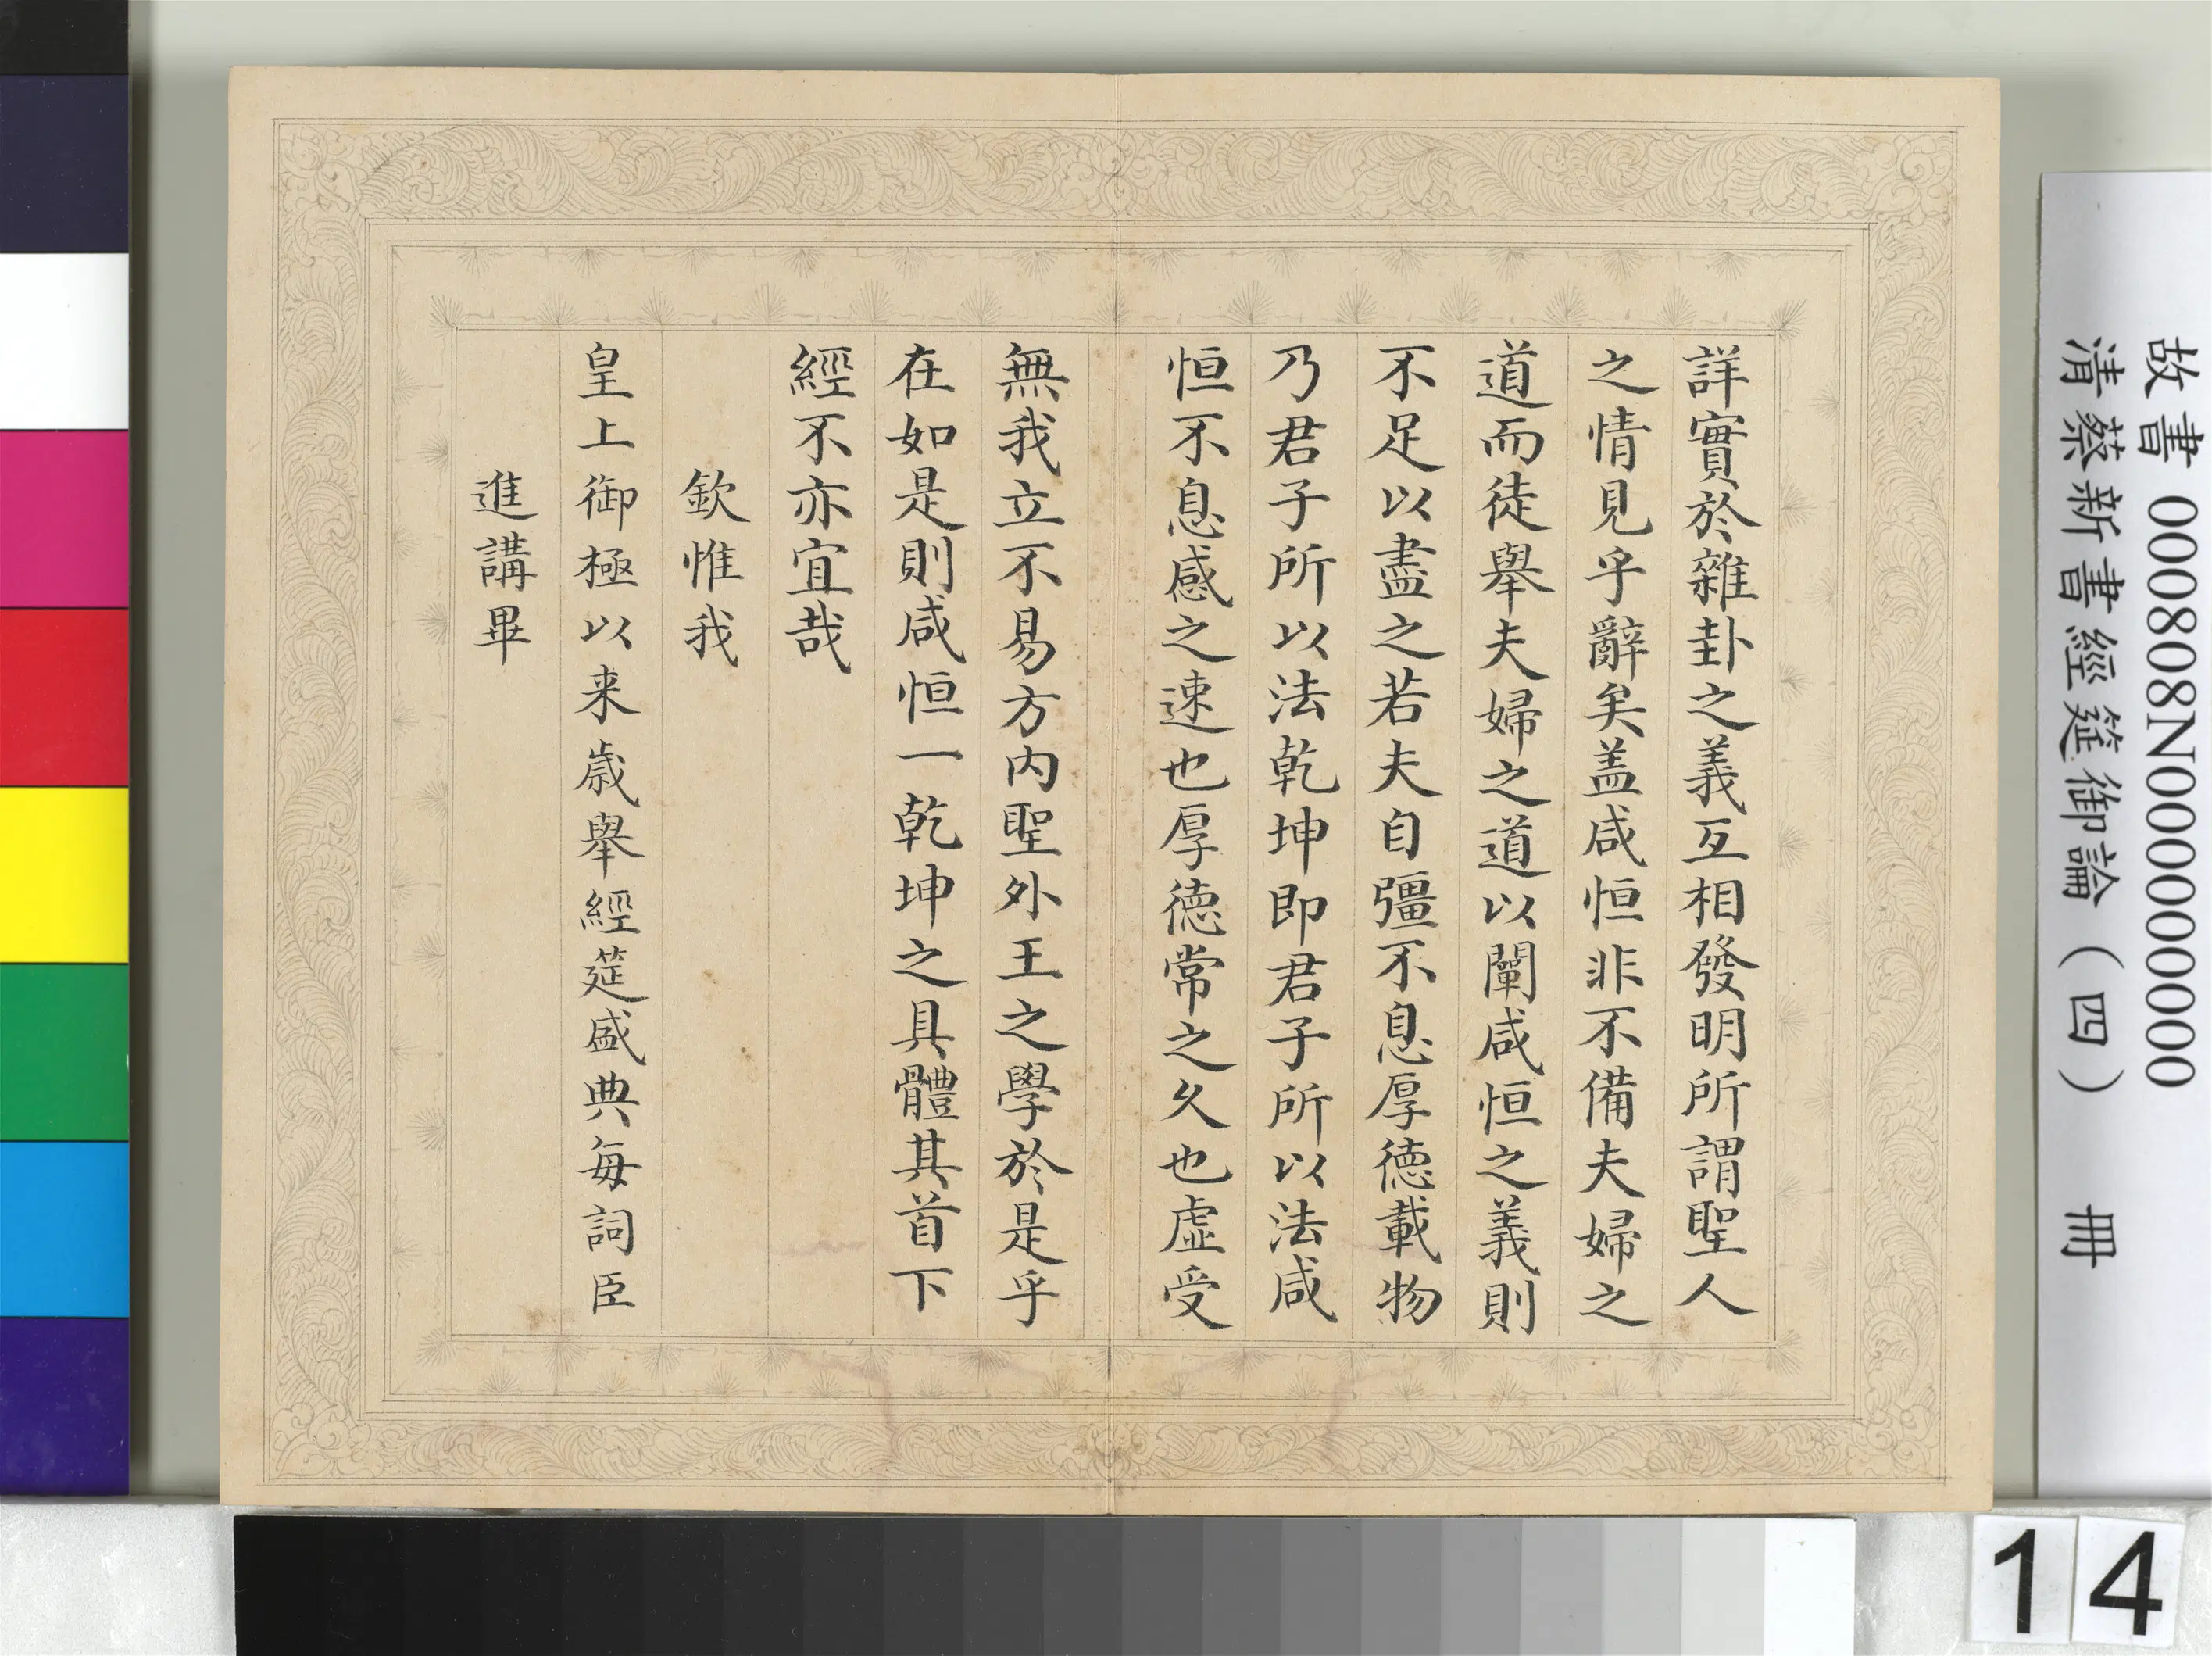 詳實於雜卦之義互相發明所謂聖人
之情見乎辭矣盖咸恒非不備夫婦之
道而徒舉夫婦之道以闡咸恒之義則
不足以盡之若夫自彊不息厚德載物
乃君子所以法乾坤即君子所以法咸
恒不息感之速也厚德常之久也虛受
無我立不易方內聖外王之學於是乎
在如是則咸恒一乾坤之具體其首下
經不亦宜哉
欽惟我
皇上御極以来歲舉經筵盛典每詞臣
進講畢
故書 000808N000000000
清蔡新書經筵御論(四) 冊
14